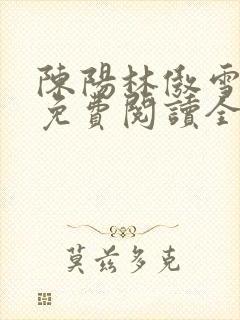 陳陽林傲雪
免費閱讀全
莫茲多克